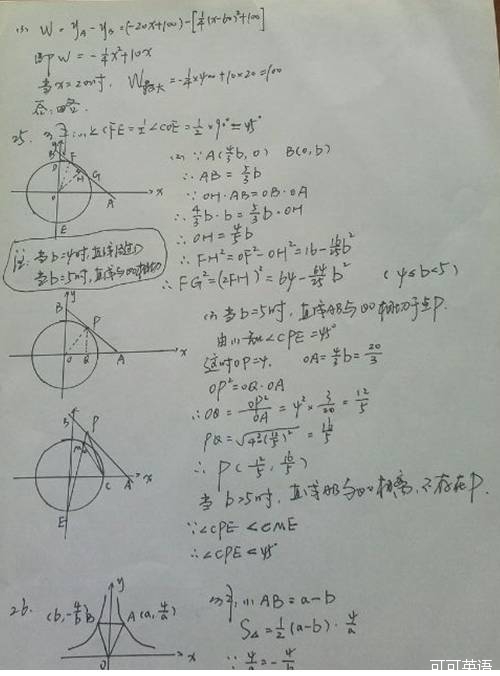 (1) W = y_A - y_B = (-20x+100) - [¼(x-60)²+100]
即 W = -¼x²+10x
当x=20时, W最大 = -¼×400+10×20=100
答:略.
25.
∠CFE=½∠COE=½×90°=45°
(2) ∵ A(4/3b, 0) B(0, b)
∴ AB = 5/3b
∵ OH·AB=OB·OA
∴ 4/3b·b=5/3b·OH
∴ OH=4/5b
∴ FH²=OF²-OH²=16-16/25b²
∴ FG²=(2FH)²=64-64/25b² (4≤b<5)
注: 当b=4时,直线过D
当b=5时,直线与⊙O相切
(3) 当b=5时,直线AB与⊙O相切于点P.
由(1)知∠CPE=45°
这时OP=4, OA=4/3b=20/3
OP²=OQ·OA
∴ OQ=OP²/OA=4²×3/20=12/5
PQ=√4²-(12/5)²=16/5
∴ P(12/5, 16/5)
当b>5时,直线AB与⊙O相离,不存在P.
∵∠CPE<∠CME
∴∠CPE<45°
26.
(b, -4/b) B A(a, 4/a)
AB=a-b
S△=½(a-b)·4/a
∵ 4/a=-4/b
可可英语